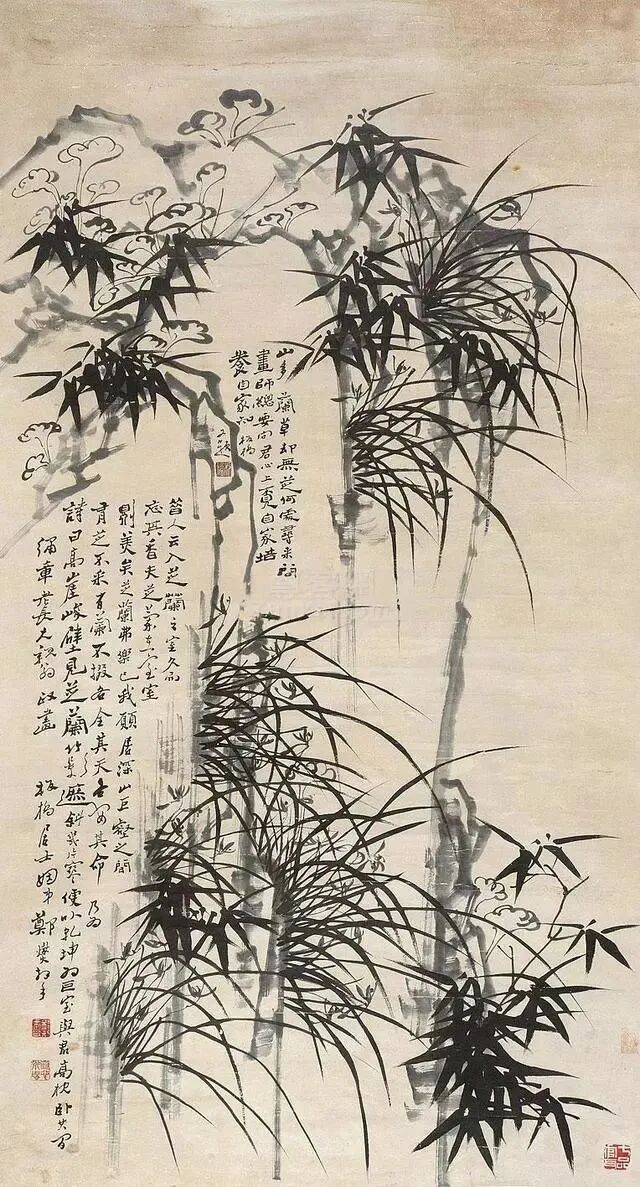 山多蘭草却無芝何處尋來問
畫師總要向君心上覓自家培
養自家知 板橋
又題
昔人云入芝蘭之室久而
忘其香夫芝蘭在室室
則美矣芝蘭弗樂也我願居深山巨壑之間
有芝不采有蘭不掇各全其天各安其命 乃為
詩曰高崖峻壁見芝蘭竹影遮斜幾片寒便以乾坤為巨室與君高枕臥其間
重老長兄親翁政畫 板橋居士姻弟鄭燮拜手